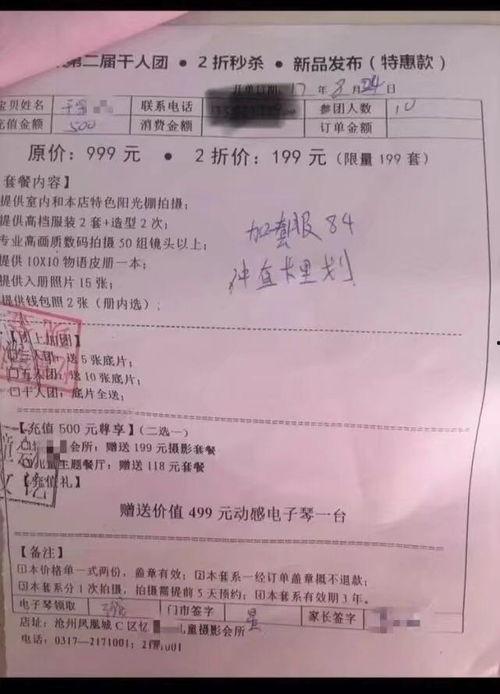 第二届千人团 • 2折秒杀 • 新品发布(特惠款)
开单日期 17 年 8 月 24 日
宝贝姓名 联系电话 参团人数 10
充值金额 500 消费金额 订单金额
原价:999 元 • 2 折价:199 元(限量 199 套)
套餐内容】
提供室内和本店特色阳光棚拍摄;
提供高档服装 2 套+造型 2 次;
专业高画质数码拍摄 50 组镜头以上;
提供 10X10 物语皮册一本;
提供入册照片 15 张;
提供钱包照 2 张(册内选);
加套服 84
冲值卡里划
【团上加团】
□三人团:送 5 张底片;
□五人团:送 10 张底片;
□十人团:底片全送;
【充值 500 元尊享】(二选一)
会所:赠送 199 元摄影套餐
儿童主题餐厅:赠送 118 元套餐
【充值礼】
赠送价值 499 元动感电子琴一台
【备注】
①本价格单一式两份,盖章有效;②本套系一经订单盖章概不退款;
③本套系分 1 次拍摄,拍摄需提前 5 天预约;④本套系有效期 3 年。
电子琴领取 门市签字 家长签字
店址:沧州凤凰城 C 区忆 儿童摄影会所
电话:0317-2171001;